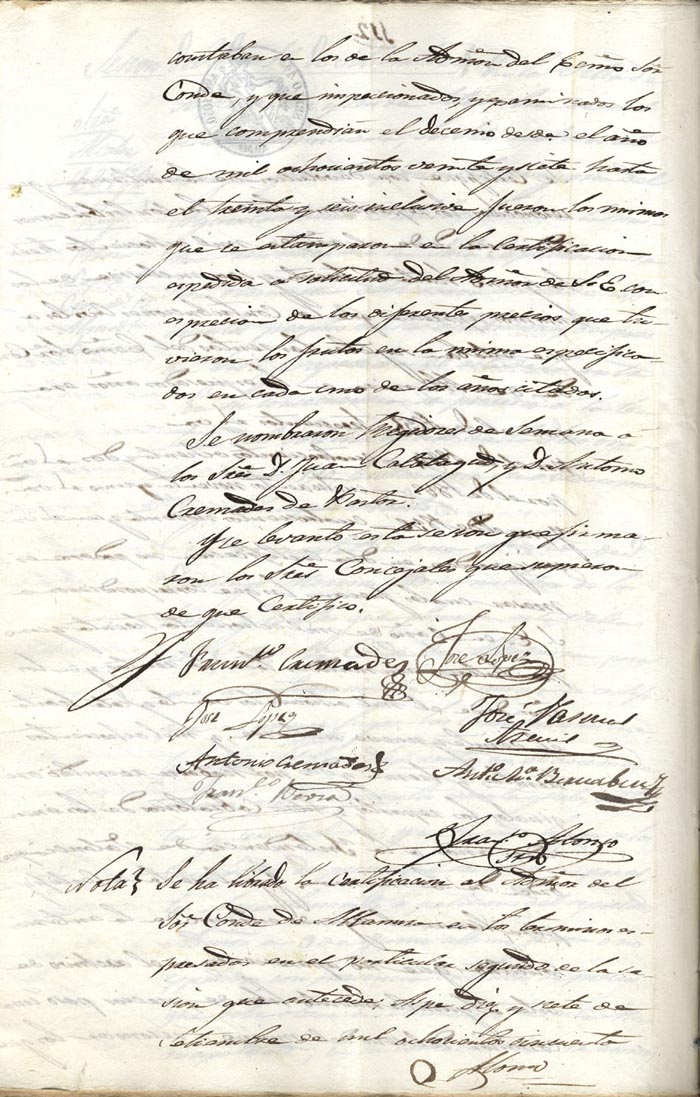 constaban en los de la Admõn del Exmo Sõr
Conde, y que inspecionados, y examinados los
que comprendian el decenio desde el año
de mil ochocientos veinte y siete hasta
el treinta y seis inclusive fueron los mismos
que se estamparon en la Certificacion
expedida a solicitud del Admõr de S. E. con
espresion de los diferentes precios que tu-
vieron los frutos en la misma especifica-
dos en cada uno de los años citados.
Se nombraron Regidores de Semana a
los Sres D. Juan Calatayud, y D. Antonio
Cremades de Pastor.
Y se levantó esta sesion que firma-
ron los Sres Concejales que supieron
de que Certifico.
Franco Cremades José Lopez
José Lopez José Pascual
Antonio Cremades Anto Ma Bernabeu
Franco
Franco Alonso
Srio
Nota Se ha librado la certificacion al Admõr del
Sõr Conde de Altamira en los terminos es-
presados en el particular segundo de la se-
sion que antecede; Aspe diez y siete de
Setiembre de mil ochocientos cincuenta
Alonso